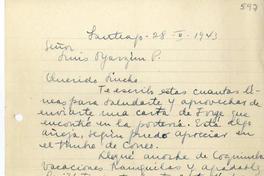 597
Santiago - 28 II - 1943
Señor
Luis Oyarzún P.
Querido Lucho
Te escribo estas cuantas lí-
neas para saludarte y aprovechar de
enviarte una carta de Jorge que
encontré en la portería. Está algo
añeja, según puedo apreciar en
el timbre de Correo.
Llegué anoche de Coquimbo
Vacaciones tranquilas y agradables